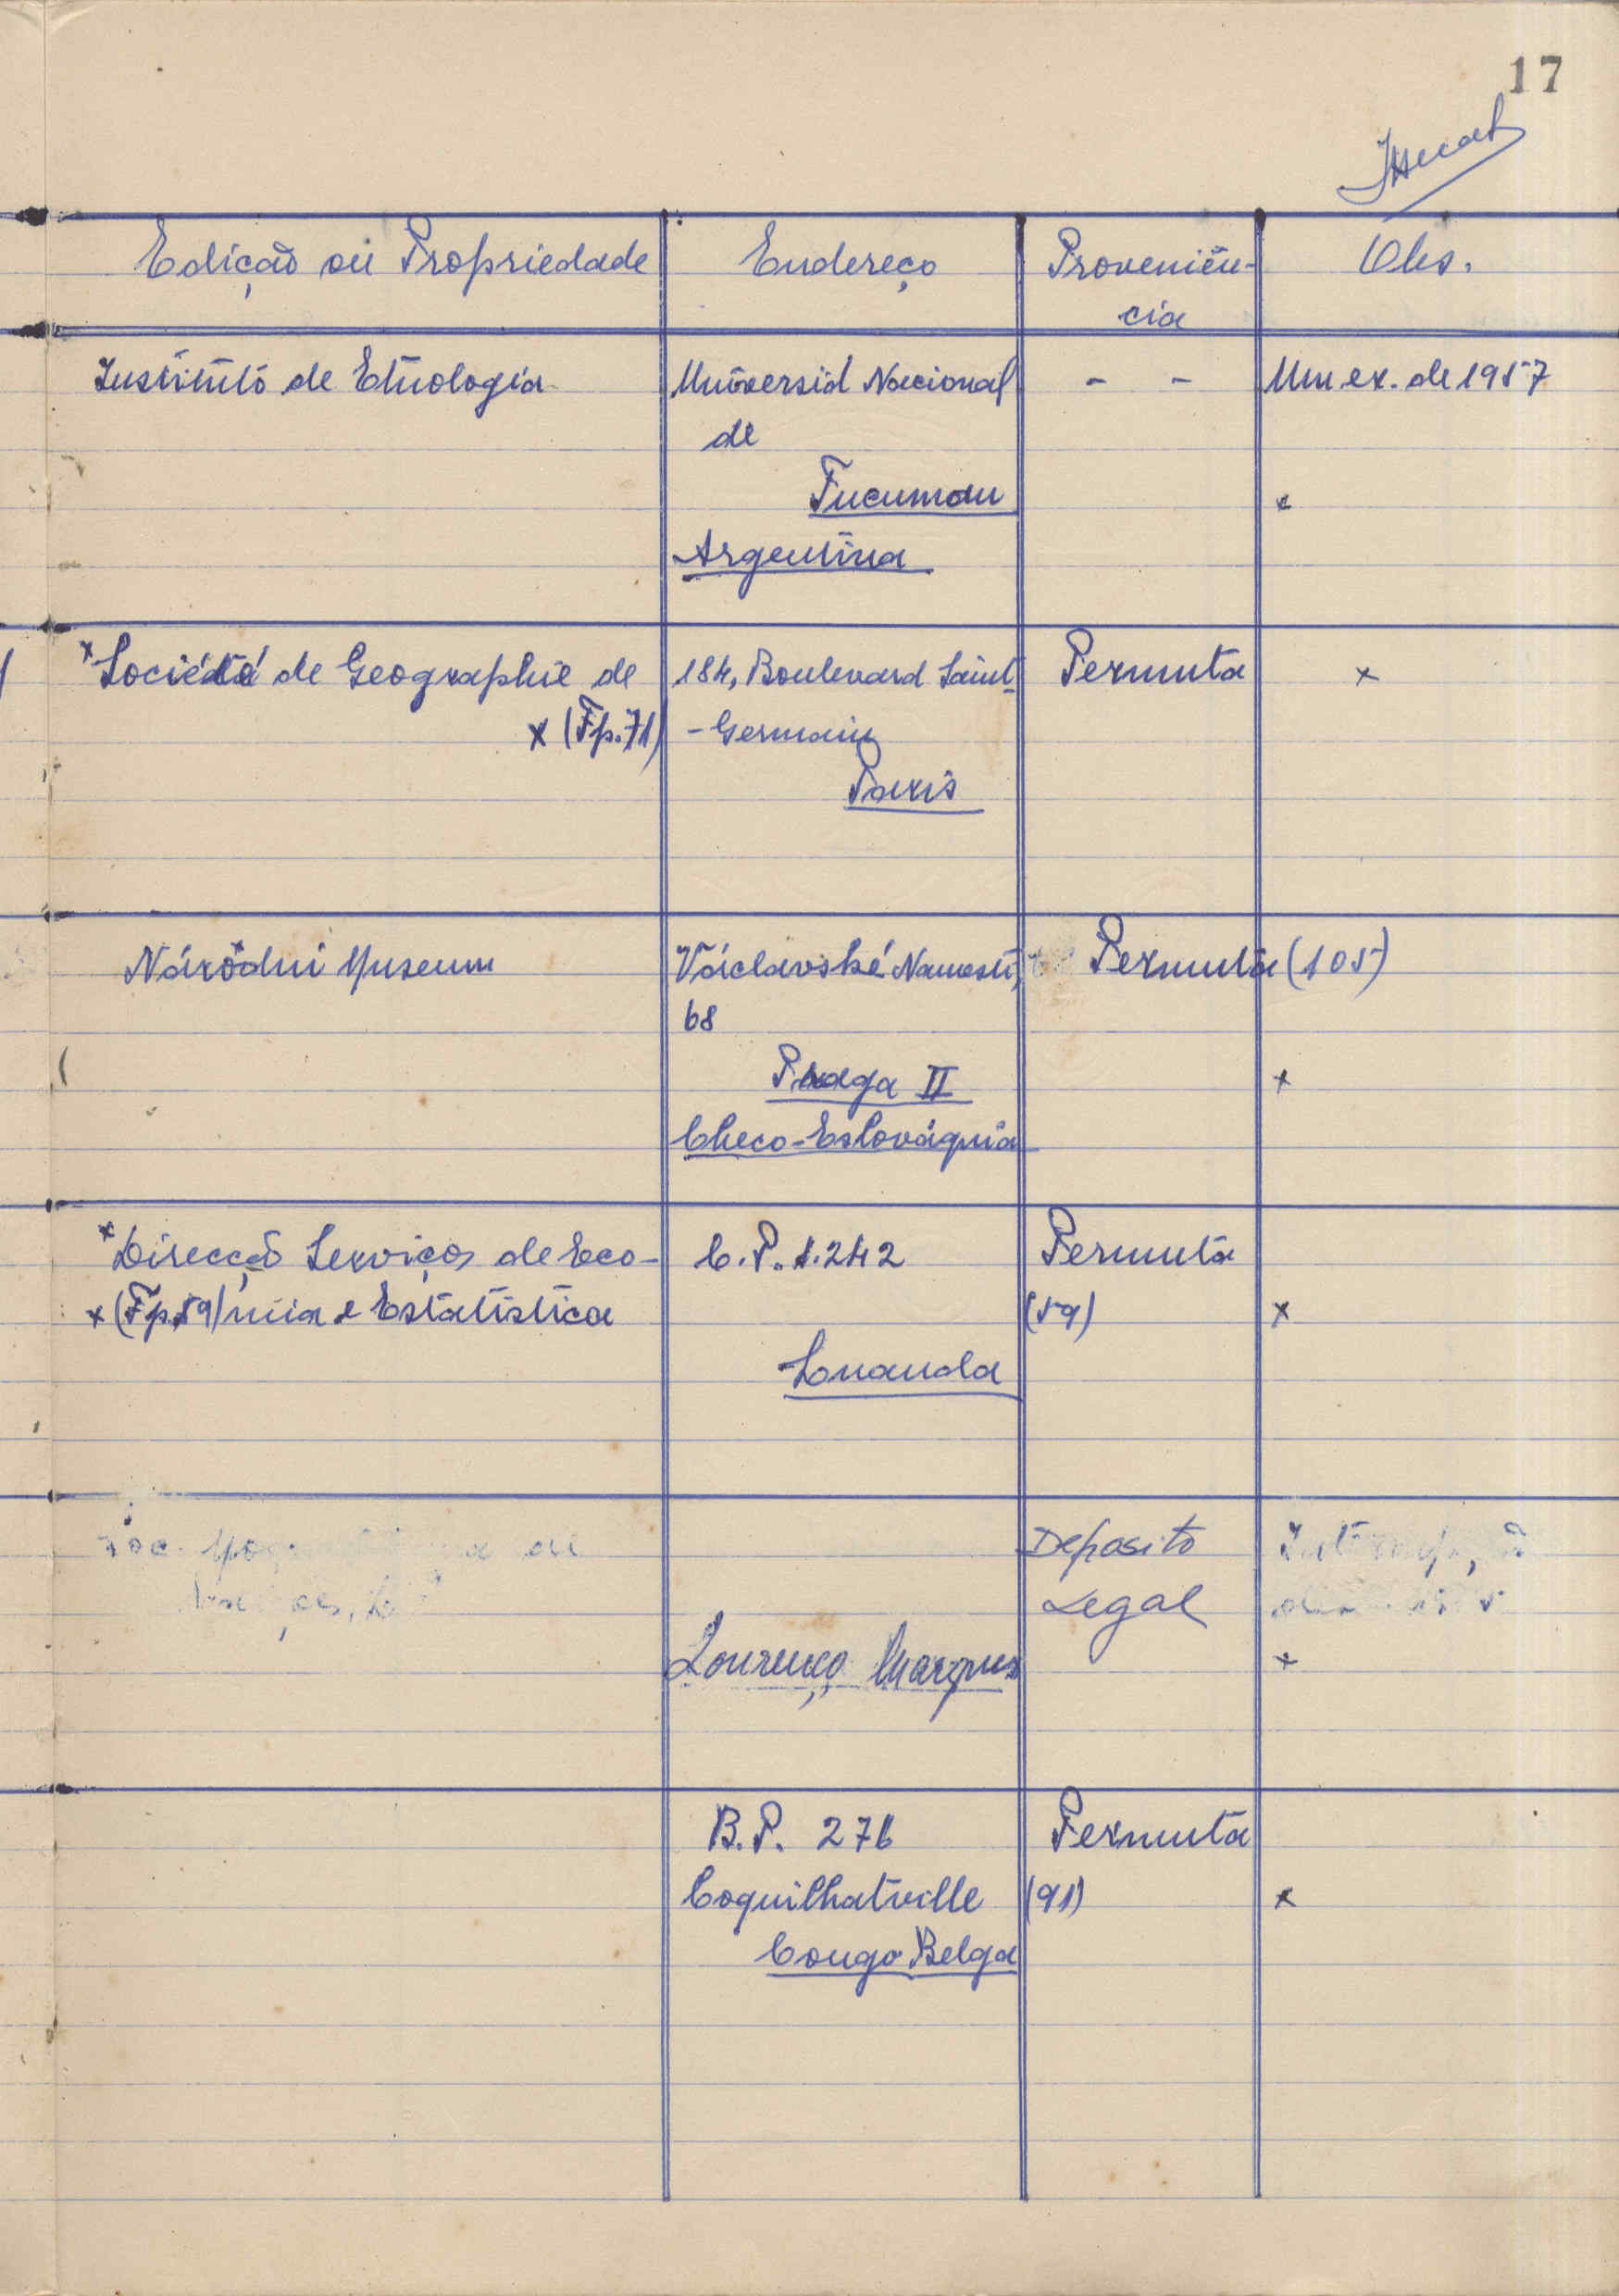 17
Edição ou Propriedade Endereço Proveniên- Obs.
cia
Instituto de Etnologia Universid Nacional - - Um ex. de 1957
de
Tucuman x
Argentina
x Société de Geographie de 184, Boulevard Saint- Permuta x
x (Fp. 71) - Germain
Paris
Národni Museum Václavské Namesti, Permuta (105)
68
Praga II x
Checo-Eslováquia
x Direcção Serviços de Eco- C.P. 1.242 Permuta
x (Fp. 59) mia e Estatística (59) x
Luanda
Deposito
Legal
Lourenço Marques x
B.P. 276 Permuta
Coquilhatville (91) x
Congo Belga